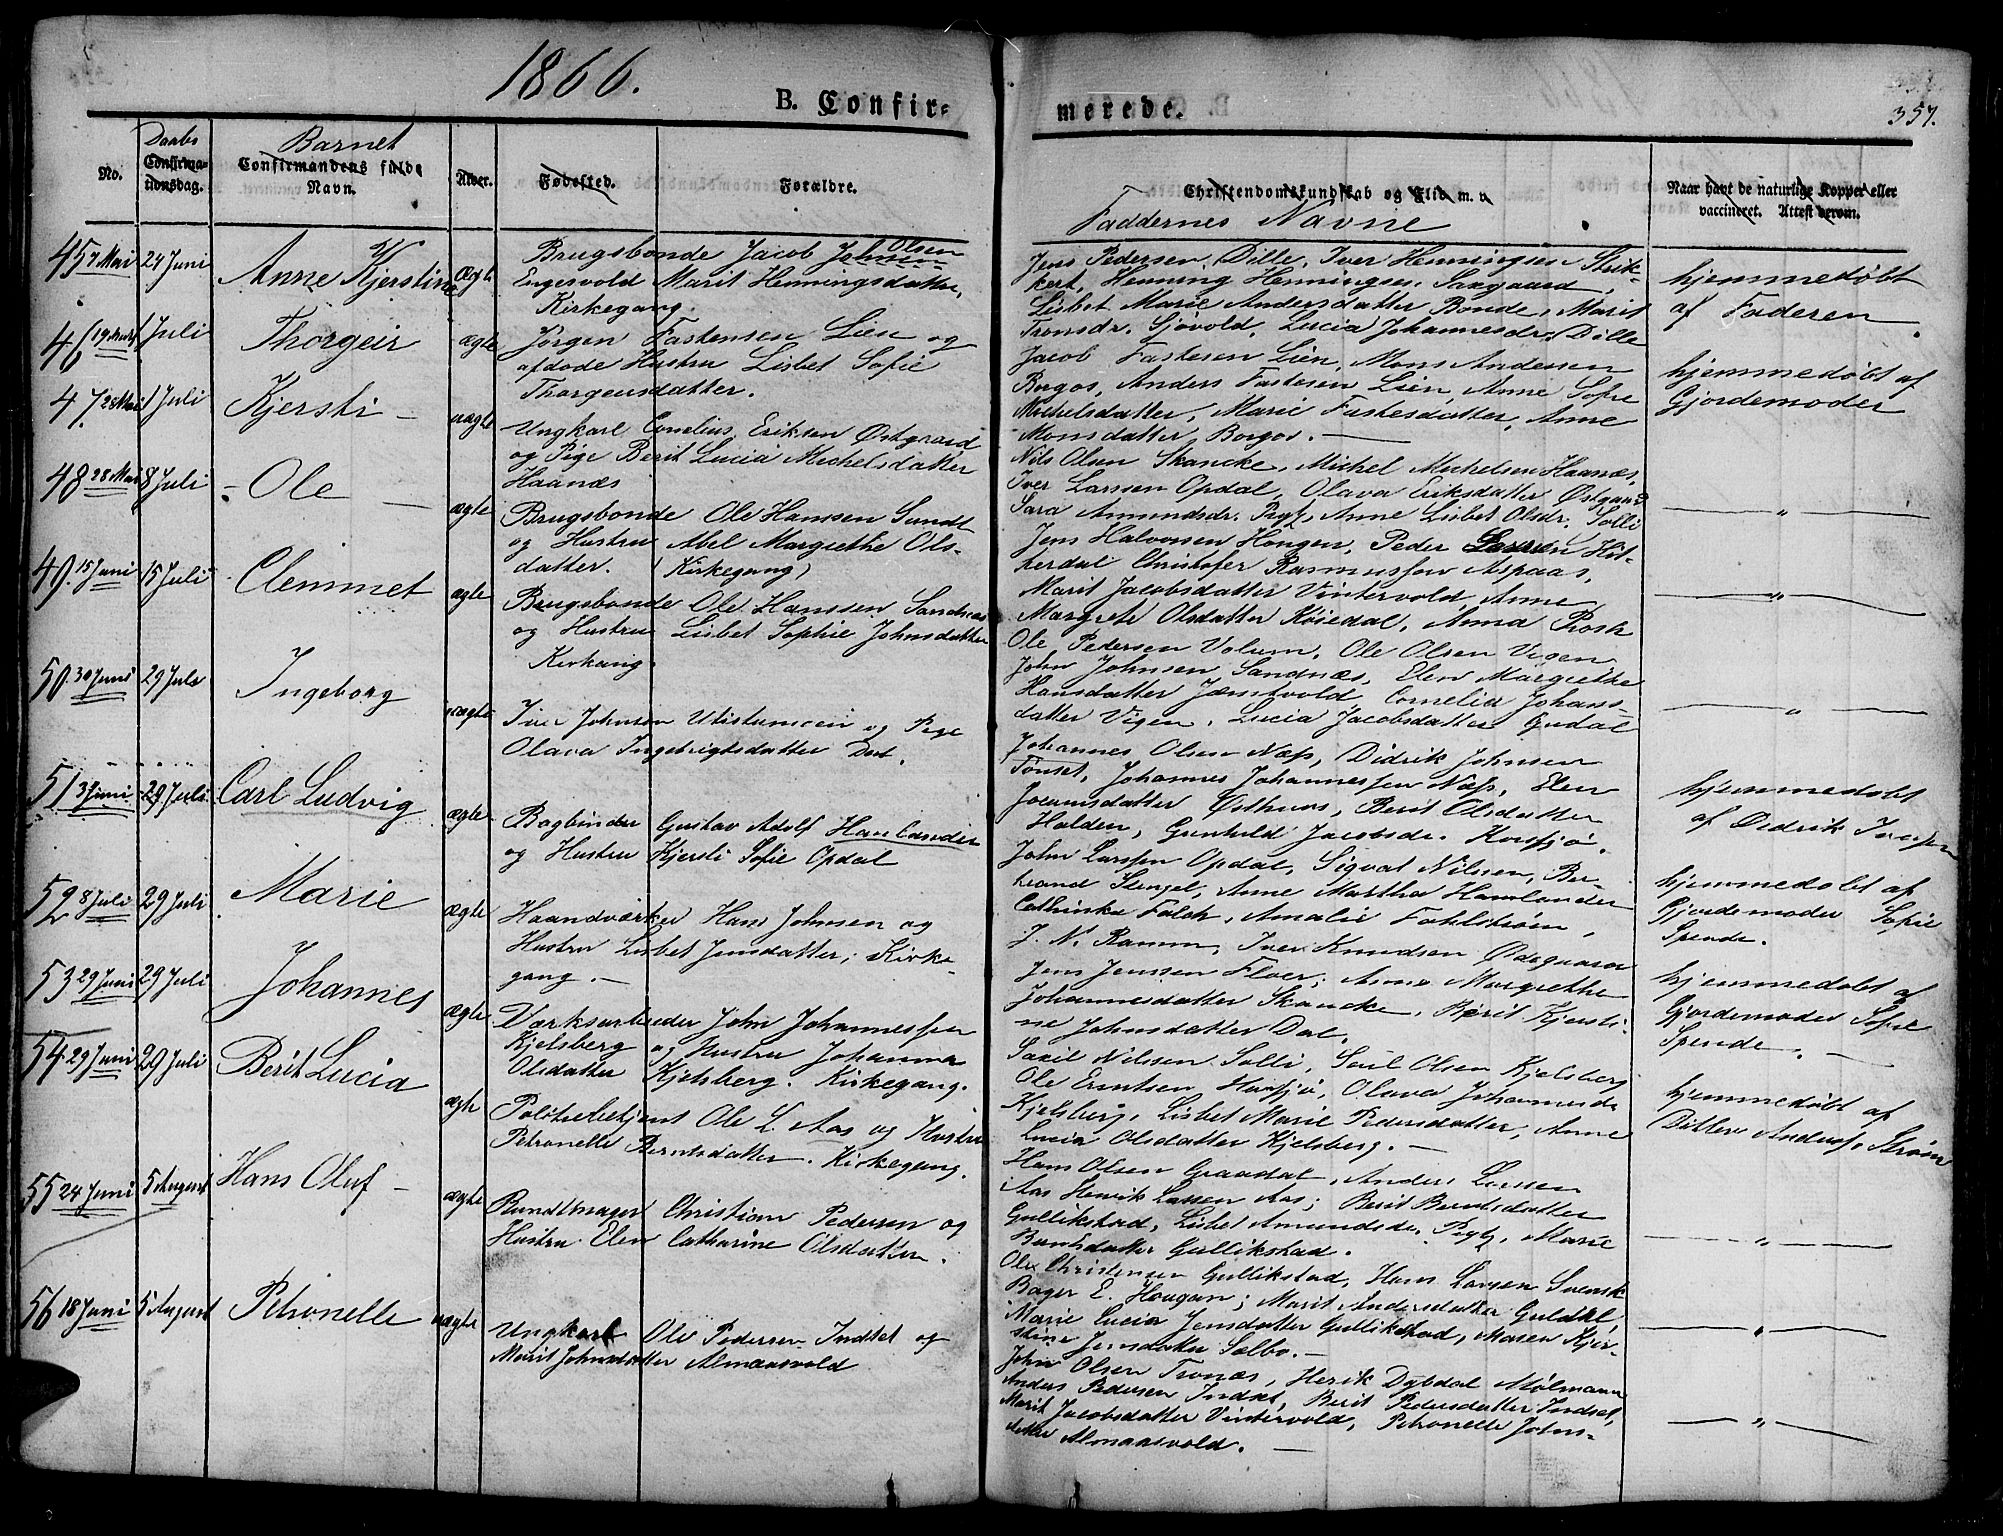 1866.
B. Confir-
merede.
357.
Daabs
Barnet
No.
Confirma-
tionsdag.
Confirmandens fulde
Navn.
Alder.
Fødested.
Forældre.
Christendomskundskab og Flid m. v
Naar havt de naturlige Kopper eller
vaccineret. Attest derom.
Faddernes Navne
45 7 Mai 24 Juni Anne Kjerstine Ægte
Brugsbonde Jacob Olsen
Engesvold Marit Henningsdatter,
Kirkegang.
Jens Pedersen Dille, Iver Henningsen
Henning Henningsen Saxgaard,
Lisbet Marie Andersdatter Bonde, Marit
Tronsdr. Sjøvold, Lucia Johannesdr. Dille
hjemmedøbt
af Faderen.
46 19 Marts 1 Juli Thorgeir ægte
Jørgen Fastensen Lien og
afdøde Hustru Lisbet Sofie
Thorgeirsdatter.
Jacob Fastesen Lien, Mons Andersen
Borgos, Anders Fastesen Lien, Anne Sofie
Michelsdatter, Marie Fastesdatter, Anne
Monsdatter Borgos. —
hjemmedøbt af
Gjordemoder
47. 28 Mai 1 Juli Kjersti — uægte
Ungkarl Cornelius Eriksen Østgaard
og Pige Berit Lucia Michelsdatter
Haanæs
Nils Olsen Skancke, Michel Michelsen Haanæs,
Iver Larssen Opdal, Olava Eriksdatter Østgaard
Sara Amundsdr. Anne Lisbet Olsdr. Solli
— „ —
48 28 Mai 8 Juli - Ole — ægte
Brugsbonde Ole Hanssen Sundt
og Hustru Abel Margrethe Ols-
datter. (Kirkegang)
Jens Halvorsen Hongen, Peder Larsen Hit-
terdal Christofer Rasmussen Aspaas,
Marit Jacobsdatter Vintervold, Anne
Margrete Olsdatter Køiedal, Anna Rosk
— „ —
49. 15 Juni 15 Juli Clemmet ægte
Brugsbonde Ole Hanssen Sandnæs
og Hustru Lisbet Sophie Johnsdatter
Kirkegang.
Ole Pedersen Volum, Ole Olsen Vigen
John Johnsen Sandnæs, Elen Margrethe
Hansdatter Jamtvold Cornelia Johans-
datter Vigen, Lucia Jacobsdatter Grudal
— „ —
50. 30 Juni 29 Juli Ingeborg uægte
Iver Johnsen Utistumoen og Pige
Olava Ingebrigtsdatter Dal.
Johannes Olsen Næss, Didrik Johnsen
Tønset, Johannes Johannessen Næss, Elen
Joramsdatter Østhuus, Berit Olsdatter
Holden, Gunhild Jacobsdr. Korssjø.
hjemmedøbt
af Didrik Iversen
51 3 Juni 29 Juli Carl Ludvig ægte
Bogbinder Gustav Adolf Hamlander
og Hustru Kjersti Sofie Opdal
John Larssen Opdal, Sigvat Nilssen, Ber-
trand Stengel, Anne Martha Hamlander
Cathinka Falch, Amalie Fahlstrøm,
hjemmedøbt af
Gjordemoder Sofie
Spende.
52 8 Juli 29 Juli Marie ægte
Haandværker Hans Johnsen og
Hustru Lisbet Jensdatter; Kirke-
gang. —
J. N. Ramm, Iver Knudsen Ødegaard
Jens Jenssen Floer; Anne Margrethe
Johannesdatter Skancke, Berit Kjersti-
ne Johnsdatter Dal.
hjemmedøbt af
Gjordemoder Sofie
Spende. —
53 29 Juni 29 Juli Johannes ægte
Værksarbeider John Johannessen
Kjelsberg og Hustru Johanna
Olsdatter Kjelsberg. Kirkegang.
Nilssen Solli, Paul Olsen Kjelsberg
Ole Erntsen Korssjø, Olava Johannesdr
Kjelsberg, Lisbet Marie Pedersdatter, Anne
Lucia Olsdatter Kjelsberg. —
hjemmedøbt af
Ditlev Andreas Strøm
54. 29 Juni 29 Juli Berit Lucia ægte
Politibetjent Ole L. Aas og Hustru
Petronelle Berntsdatter. Kirkegang.
Hans Olsen Graadal, Anders Larssen
Aas Henrik Larssen Aas; Berit Berntsdatter
Gullikstad, Lisbet Amundsdr. Marie
Berntsdatter Gullikstad.
— „ —
55 24 Juni 5 August Hans Oluf — ægte
Bundtmager Christian Pedersen og
Hustru Elen Catharine Olsdatter.
Ole Christensen Gullikstad, Hans Larsen Svensk
Bager E. Haugan; Marit Andersdatter Guldal,
Marie Lucia Jensdatter Gullikstad, Maren Kjer-
stine Jensdatter Sølbo. —
— „ —
56 18 Juni 5 August Petronelle uægte
Ungkarl Ole Pedersen Indset og
Marit Johnsdatter Almaasvold
John Olsen Tronæs, Henrik Dybdal Mølmann
Anders Pedersen Indset, Berit Pedersdatter Indset,
Marit Jacobsdatter Vintervold, Petronelle Johns-
datter Almaasvold. —
— „ —